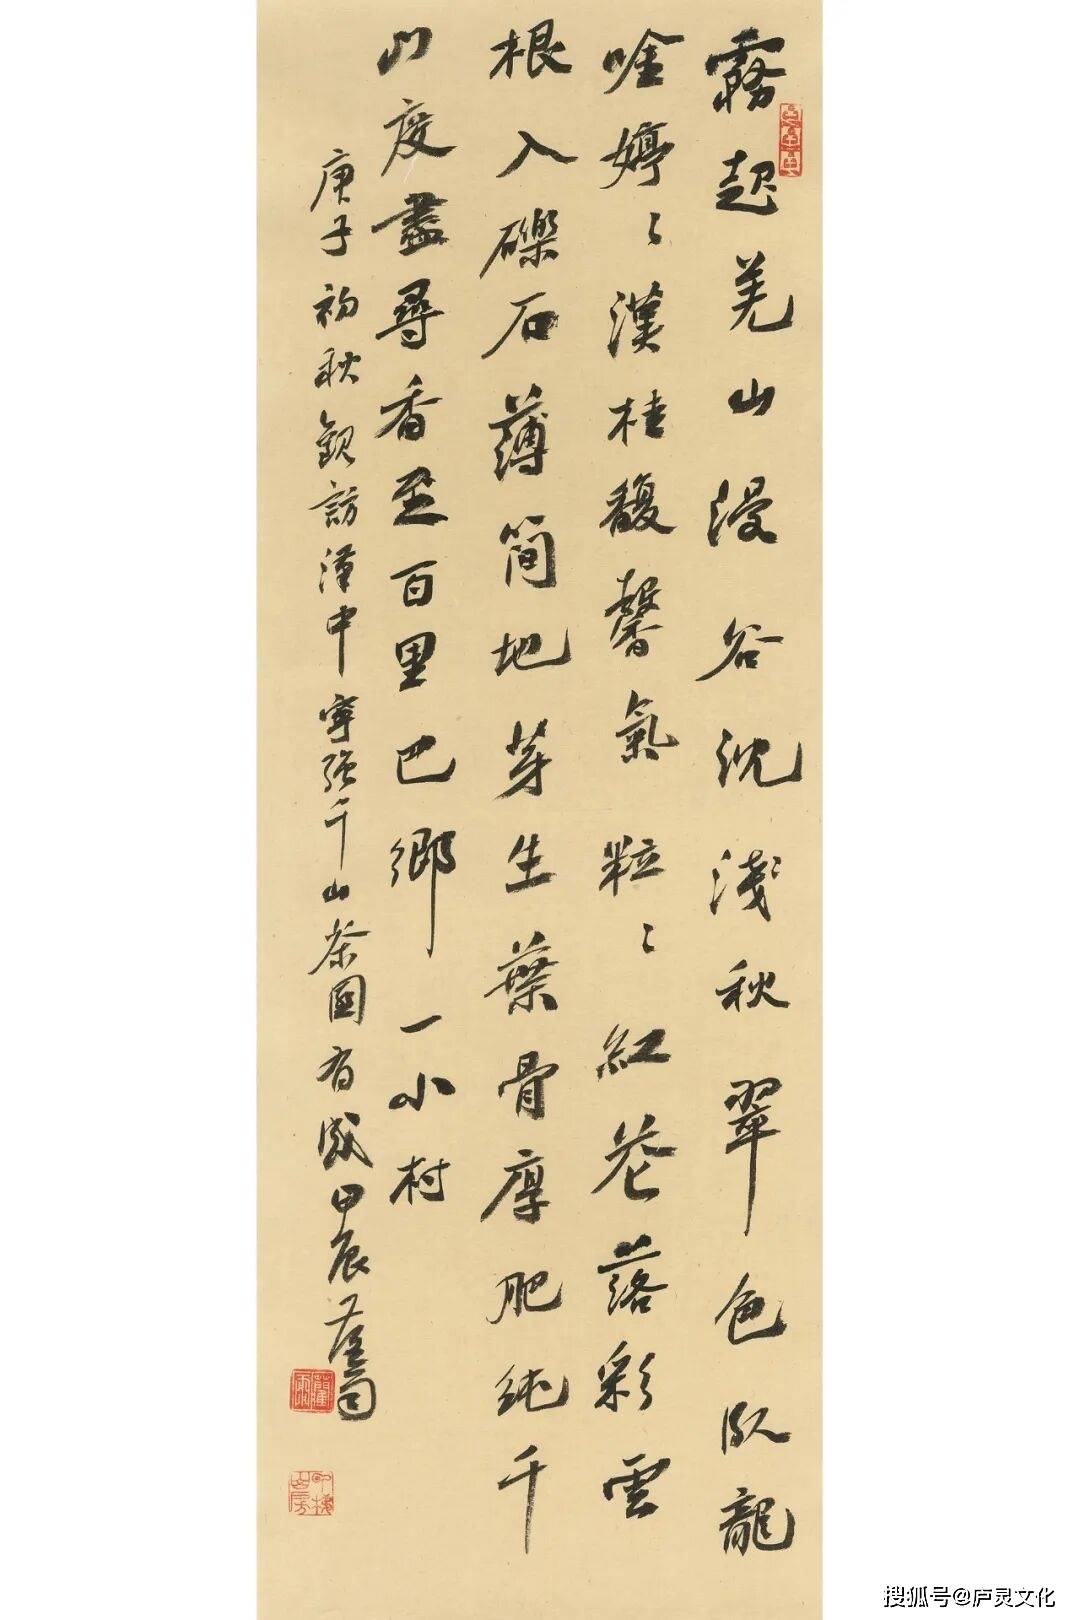 霧起羌山漫谷沈淺秋翠色臥龍
唫婷〻漢桂馥馨氣粒〻紅花落彩雲
根入礫石薄簡地芽生葉骨厚肥純千
山度盡尋香至百里巴鄉一小村
庚子初秋觀訪漢中寧強千山茶園有感甲辰
搜狐号@庐灵文化